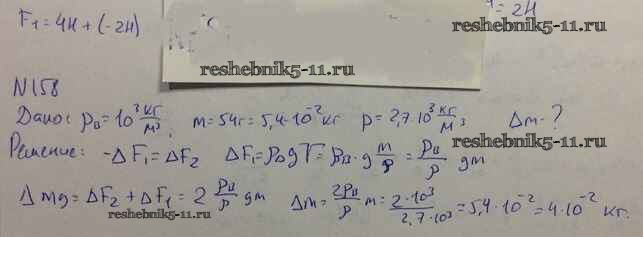 F₁ = 4H + (-2H)
= 2H
reshebnik5-11.ru
reshebnik5-11.ru
N158
Дано: ρв = 10³ кг/м³, m = 54г = 5,4·10⁻² кг ρ = 2,7·10³ кг/м³ Δm - ?
reshebnik5-11.ru
Решение: -ΔF₁ = ΔF₂ ΔF₁ = ρвgV = ρв·g m/ρ = ρв/ρ gm
Δmg = ΔF₂ + ΔF₁ = 2 ρв/ρ gm Δm = 2ρв/ρ m = 2·10³/2,7·10³ = 5,4·10⁻² = 4·10⁻² кг.
reshebnik5-11.ru